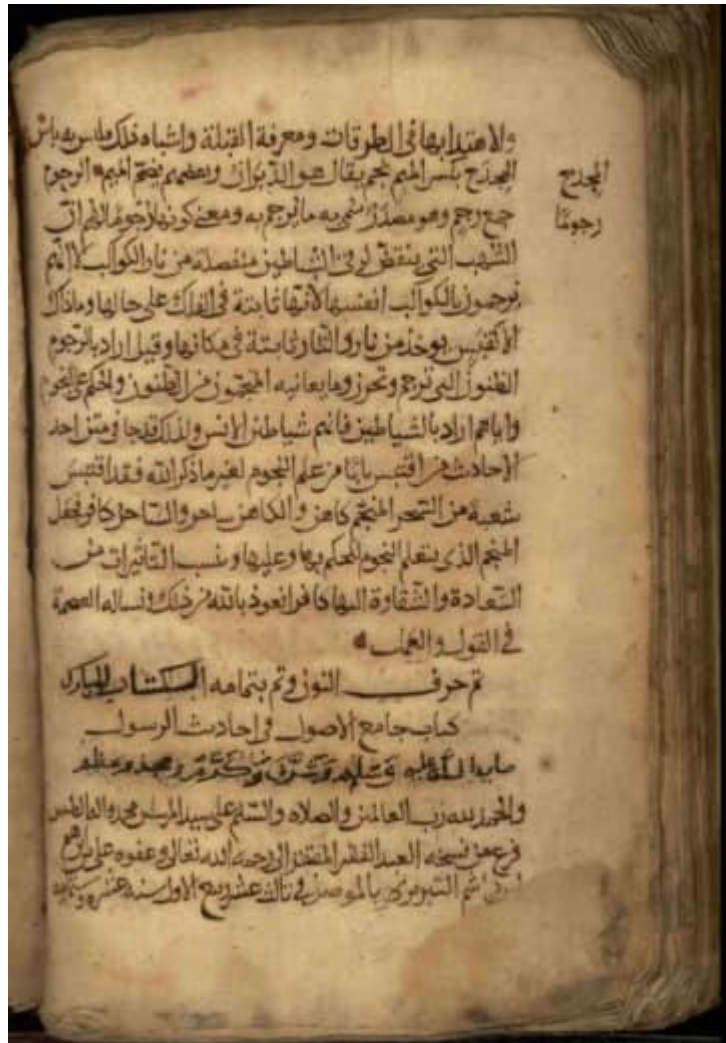 والاهتدا بها في الطرقات ومعرفة القبلة واشباه ذلك فليس به باس
المجدح بكسر الميم نجم يقال هو الدبران وبعضهم يضم الميم الرجوم
المجدح
جمع رجم وهو مصدر سمي به ما يرجم به ومعنى كونها رجوما انهم ان
رجوما
الشهب التي ينقض في الشياطين منفصلة من نار الكواكب لا انهم
يرجمون بالكواكب انفسها لانها ثابتة في الفلك على حالها وما ذاك
الا كقبس يوخذ من نار والنار ثابتة في مكانها وقيل اراد بالرجوم
الظنون التي ترجم وتحزر وما يعانيه المنجمون من الظنون والحكم على النجوم
واياهم اراد بالشياطين فانهم شياطين الانس ولذلك قد جا في متن احد
الاحاديث من اقتبس بابا من علم النجوم لغير ما ذكر الله فقد اقتبس
شعبة من السحر المنجم كاهن والكاهن ساحر والساحر كافر فجعل
المنجم الذي يتعلم النجوم للحكم بها وعليها وينسب التاثيرات من
السعادة والشقاوة اليها كافرا نعوذ بالله من ذلك ونساله العصمة
في القول والعمل
تم حرف النون وتم بتمامه الكتاب المبارك
كتاب جامع الاصول في احاديث الرسول
صلى الله عليه وسلم وشرف وكرم ومجد وعظم
والحمد لله رب العالمين والصلاه والسلم على سيد المرسلين محمد واله الطاهرين
فرغ من نسخه العبد الفقير المفتقر الى رحمه الله تعالى وعفوه على بن
التبريزي بالموصل في ثالث عشر ربيع الاول سنة عشر وستمايه